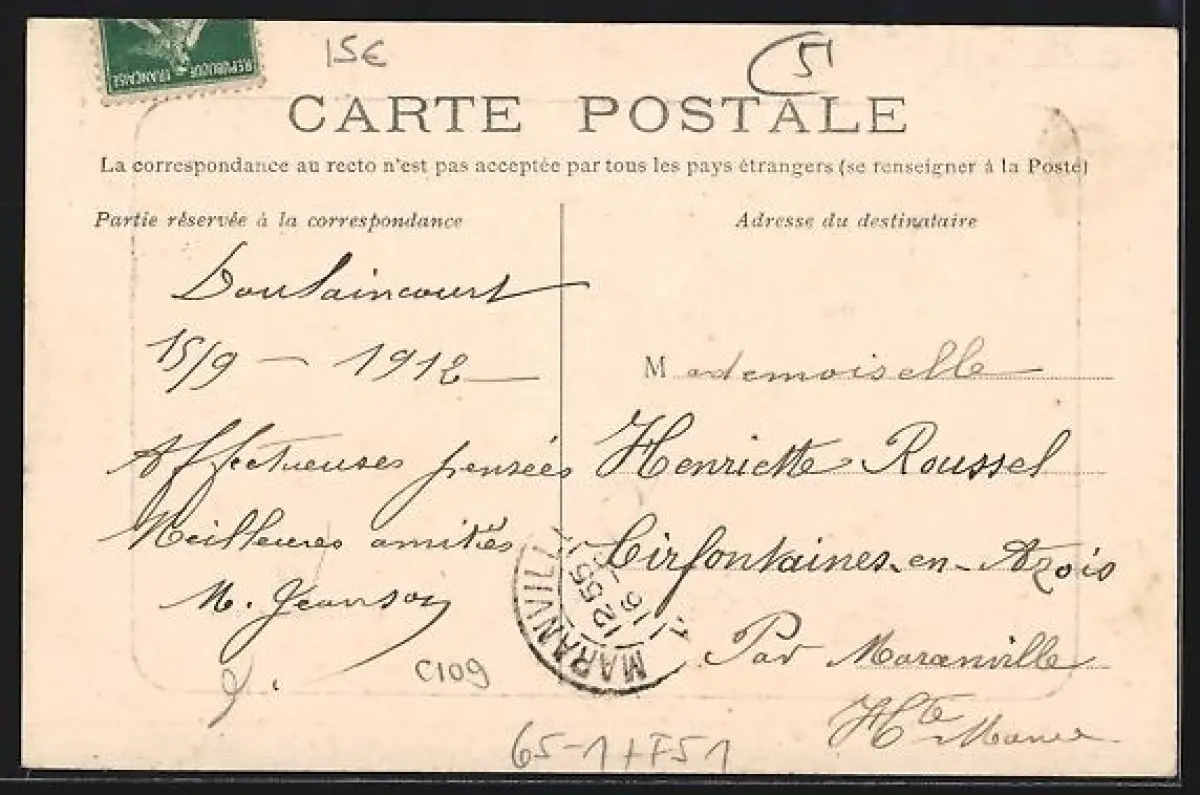 REPUBLIQUE FRANÇAISE
15€
5
CARTE POSTALE
La correspondance au recto n'est pas acceptée par tous les pays étrangers (se renseigner à la Poste)
Partie réservée à la correspondance
Doulaincourt
15/9 — 1912
Affectueuses pensées
Meilleures amitiés
M. Jeanson
C109
Adresse du destinataire
Mademoiselle
Henriette Roussel
Cirfontaines-en-Azois
Par Maranville
Hte Marne
MARANVILL
12 55
16
65-1